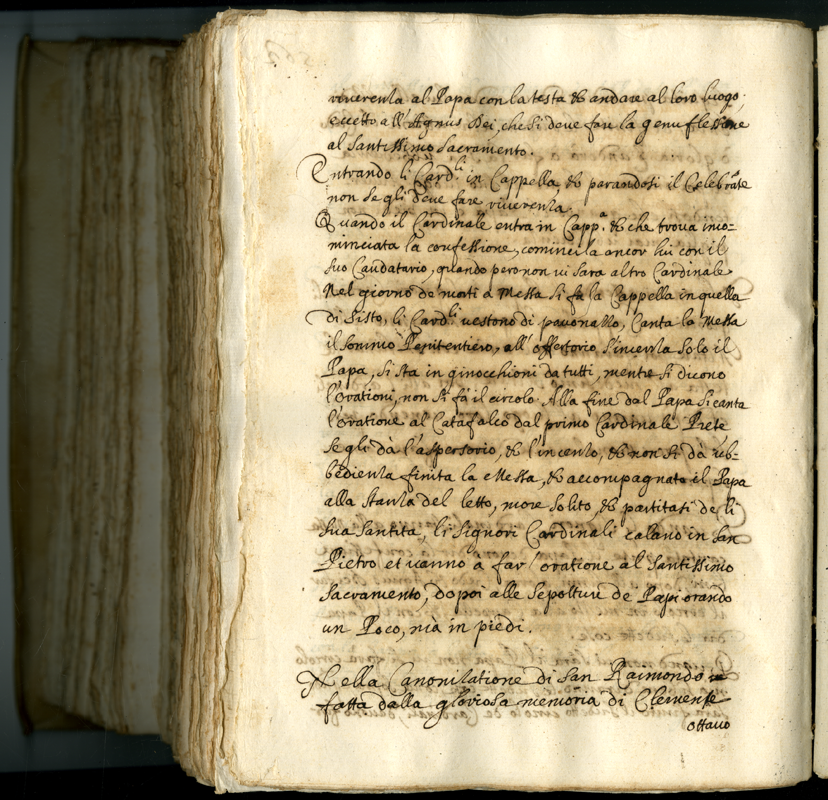 riverenza al Papa con la testa & andare al loro luogo,
eccetto all'Agnus Dei, che si deve fare la genuflessione
al Santissimo Sacramento.
Entrando li Card.li in Cappella, & parandosi il Celebrãte
non se gli deve fare riverenza.
Quando il Cardinale entra in Capp.a & che trova inco-
minciata la confessione, comincila ancor lui con il
suo Caudatario, quando però non vi sara altro Cardinale
Nel giorno de morti a Messa si fa la Cappella in quella
di Sisto, li Card.li vestono di pavonazzo, Canta la Messa
il sommo Penitentiero, all'offertorio s'incenza solo il
Papa, si sta in ginocchioni da tutti, mentre si dicono
l'orationi, non si fà il circolo. Alla fine dal Papa si canta
l'oratione al Catafalco dal primo Cardinale Prete
se gli dà l'aspersorio, & l'incenso, & non si dà ub-
bedienza finita la Messa, & accompagnato il Papa
alla stanza del letto, more solito, & partitasi de li
sua Santita, li Signori Cardinali calano in San
Pietro et vanno à far l'oratione al Santissimo
Sacramento, dopoi alle sepolture de Papi orando
un Poco, mà in piedi.
Nella Canonizatione di San Raimondo
fatta dalla gloriosa memoria di Clemente
ottavo